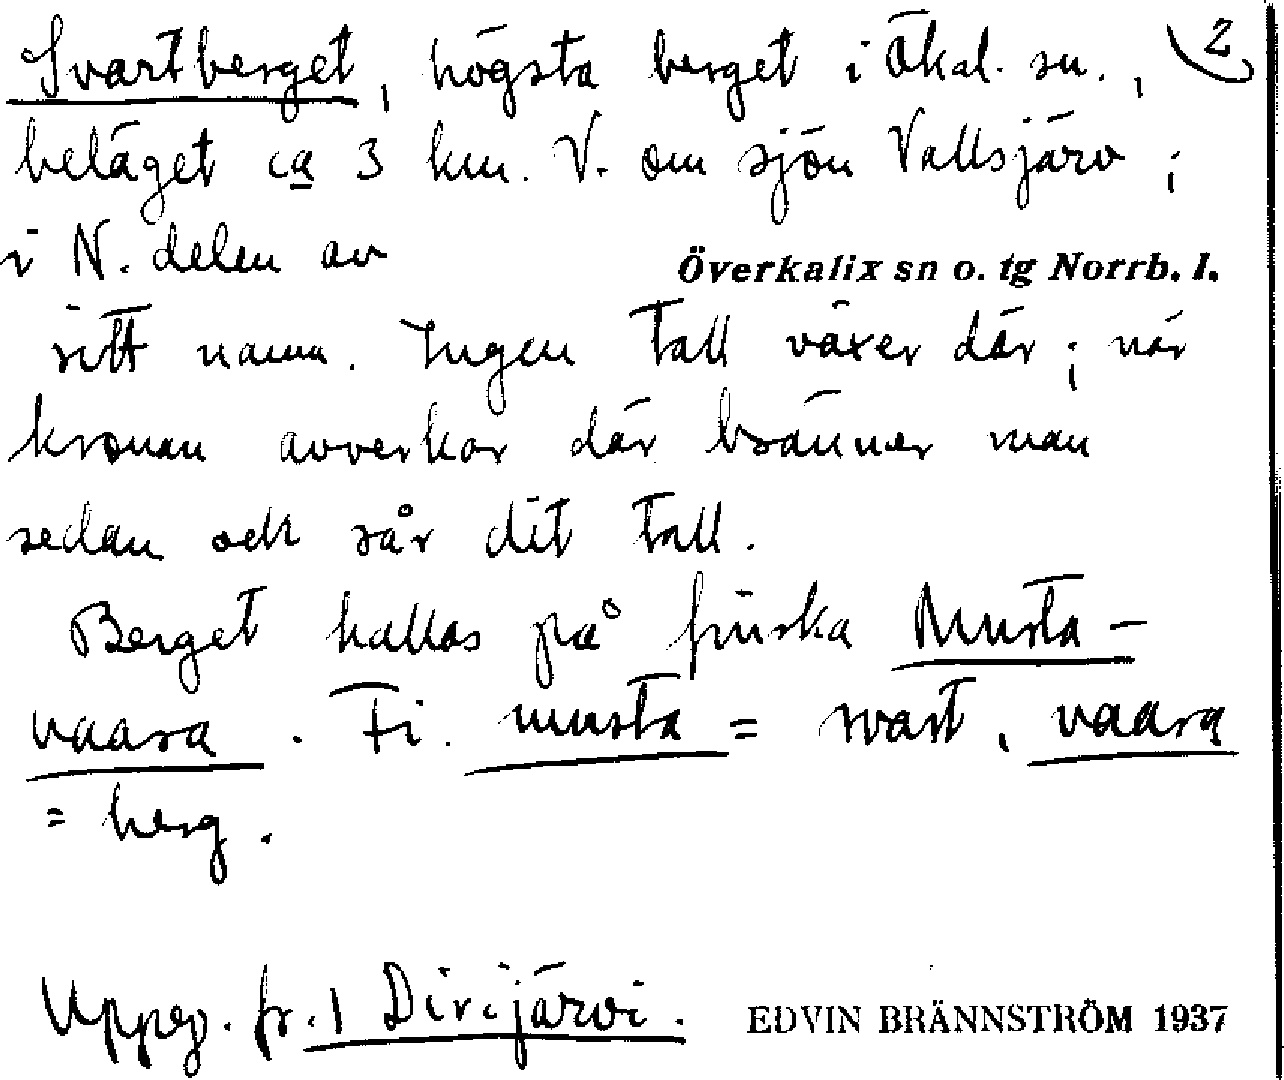 Svartberget, högsta berget i Ökal. sn., 2
beläget ca 3 km. V. om sjön Vallsjärv;
i N. delen av
Överkalix sn o. tg Norrb. l.
sitt namn. Ingen tall växer där; när
kronan avverkar där bränner man
sedan och sår dit tall.
Berget kallas på finska Musta-
vaara. Fi. musta = svart, vaara
= berg.
Uppg. fr. 1 Dirijärvi.
EDVIN BRÄNNSTRÖM 1937